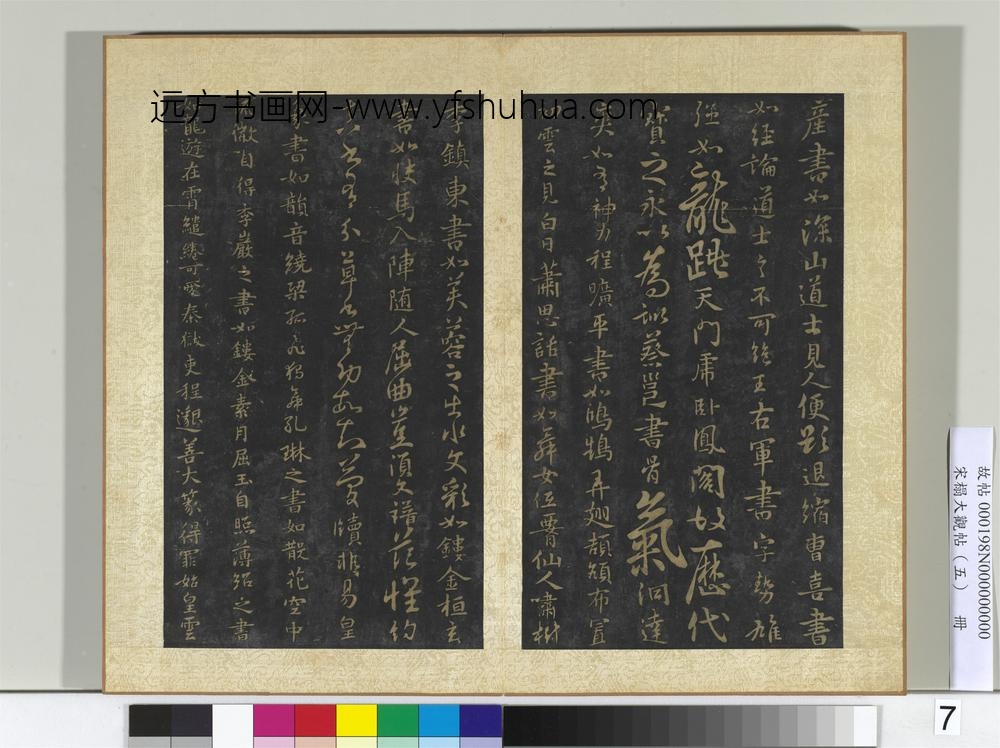 远方书画网-www.yfshuhua.com
產書如深山道士見人便欲退縮曹喜書
如經論道士言不可絶王右軍書字勢雄
強如龍跳天門虎臥鳳閣故歷代
寶之永以為訓蔡邕書骨氣洞達
爽如有神力程曠平書如鴻鵠弄翅頡頏布置
雲之見白日蕭思話書如舞女低腰仙人嘯樹
李鎮東書如芙蓉之出水文彩如鏤金桓玄
書如快馬入陣隨人屈曲豈須文譜范懷約
真書有分草書無功故知簡牘非易皇
書如韻音繞梁孤飛獨舞孔琳之書如散花空中
徽自得李巖之書如鏤金素月屈玉自照薄紹之書
如龍遊在霄繾綣可愛秦獄吏程邈善大篆得罪始皇雲
故帖 000198N000000000
宋榻大觀帖（五） 冊
7